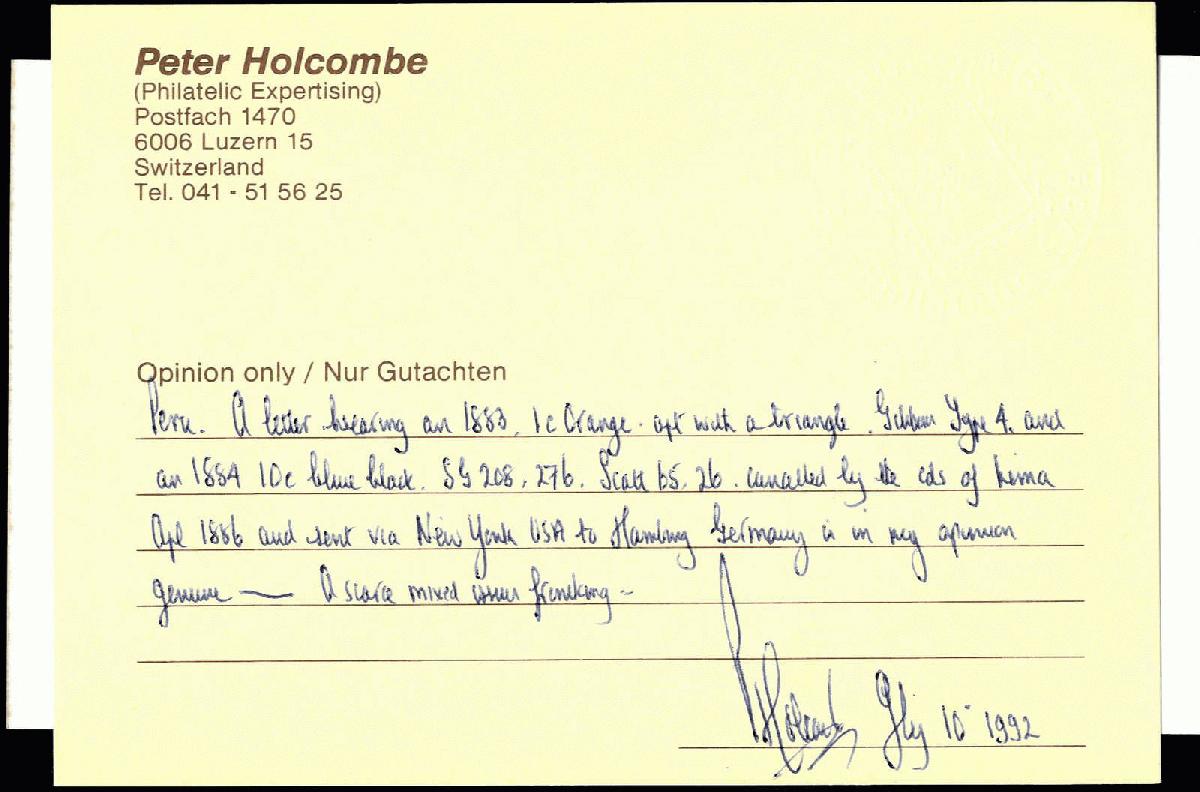 Peter Holcombe
(Philatelic Expertising)
Postfach 1470
6006 Luzern 15
Switzerland
Tel. 041 - 51 56 25
Opinion only / Nur Gutachten
Peru. A letter bearing an 1883, 1c Orange. opt with a triangle. Type 4. and
an 1884 10c blue black. SG 208, 276. Scott 65, 26. cancelled by the cds of Lima
Apl 1886 and sent via New York USA to Hamburg Germany is in my opinion
genuine — A scarce mixed issue franking -
Holcombe July 10 1992